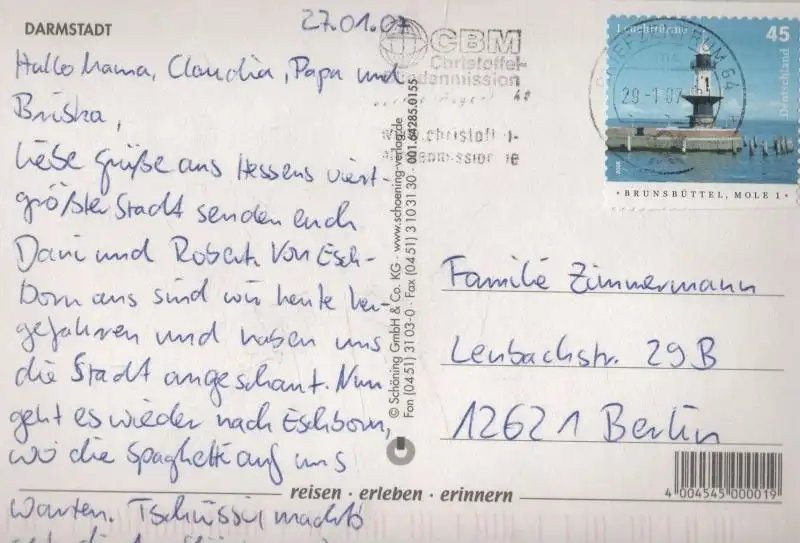 DARMSTADT
27.01.07
Hallo Mama, Claudia, Papa und
Briska,
Liebe Grüße aus Hessens viert-
größter Stadt senden euch
Dani und Robert. Von Esch-
born aus sind wir heute her-
gefahren und haben uns
die Stadt angeschaut. Nun
geht es wieder nach Eschborn,
wo die Spaghetti auf uns
warten. Tschüssi machts
CBM
Christoffel-
Blindenmission
www.christoffel-
blindenmission.de
BRIEFZENTRUM 64
29.-1.07
Leuchttürme
45
Deutschland
BRUNSBÜTTEL, MOLE 1
© Schöning GmbH & Co. KG · www.schoening-verlag.de
Fon (04 51) 31 03-0 · Fax (04 51) 3 10 31 30 · 001.64285.0155
Familie Zimmermann
Lenbachstr. 29B
12621 Berlin
reisen · erleben · erinnern
4 004545 000019